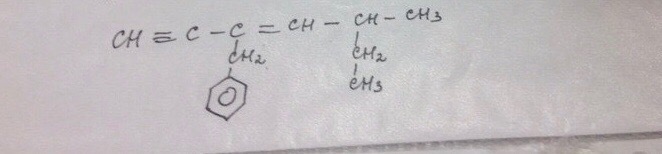 CH ≡ C - C = CH - CH - CH3
CH2 CH2
CH3